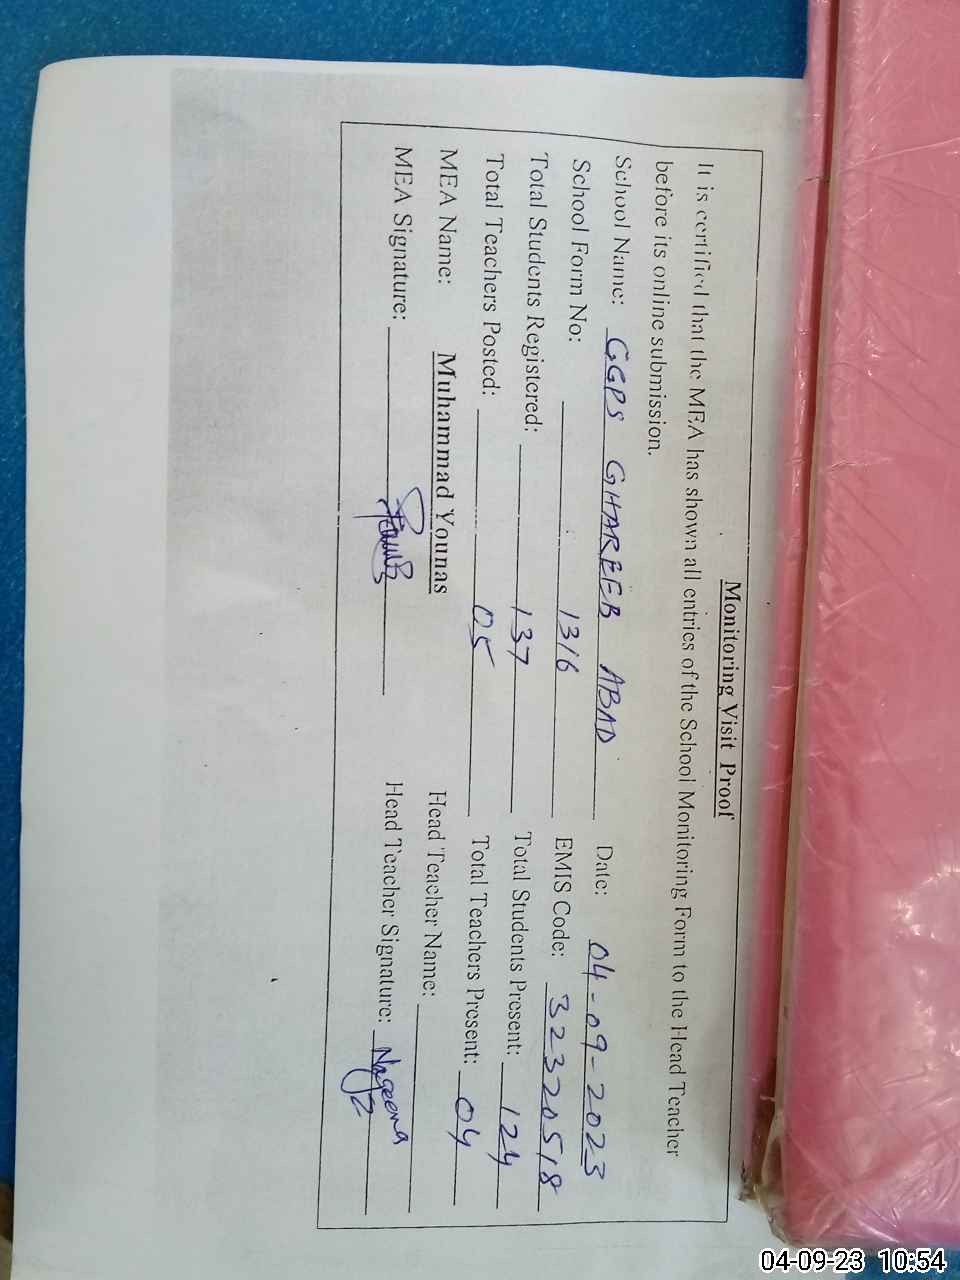 Monitoring Visit Proof
It is certified that the MEA has shown all entries of the School Monitoring Form to the Head Teacher
before its online submission.
School Name: GGPS GHAREEB ABAD Date: 04-09-2023
School Form No: 1316 EMIS Code: 32320518
Total Students Registered: 137 Total Students Present: 124
Total Teachers Posted: 05 Total Teachers Present: 04
MEA Name: Muhammad Younas Head Teacher Name:
MEA Signature: Head Teacher Signature: Nageena
04-09-23 10:54